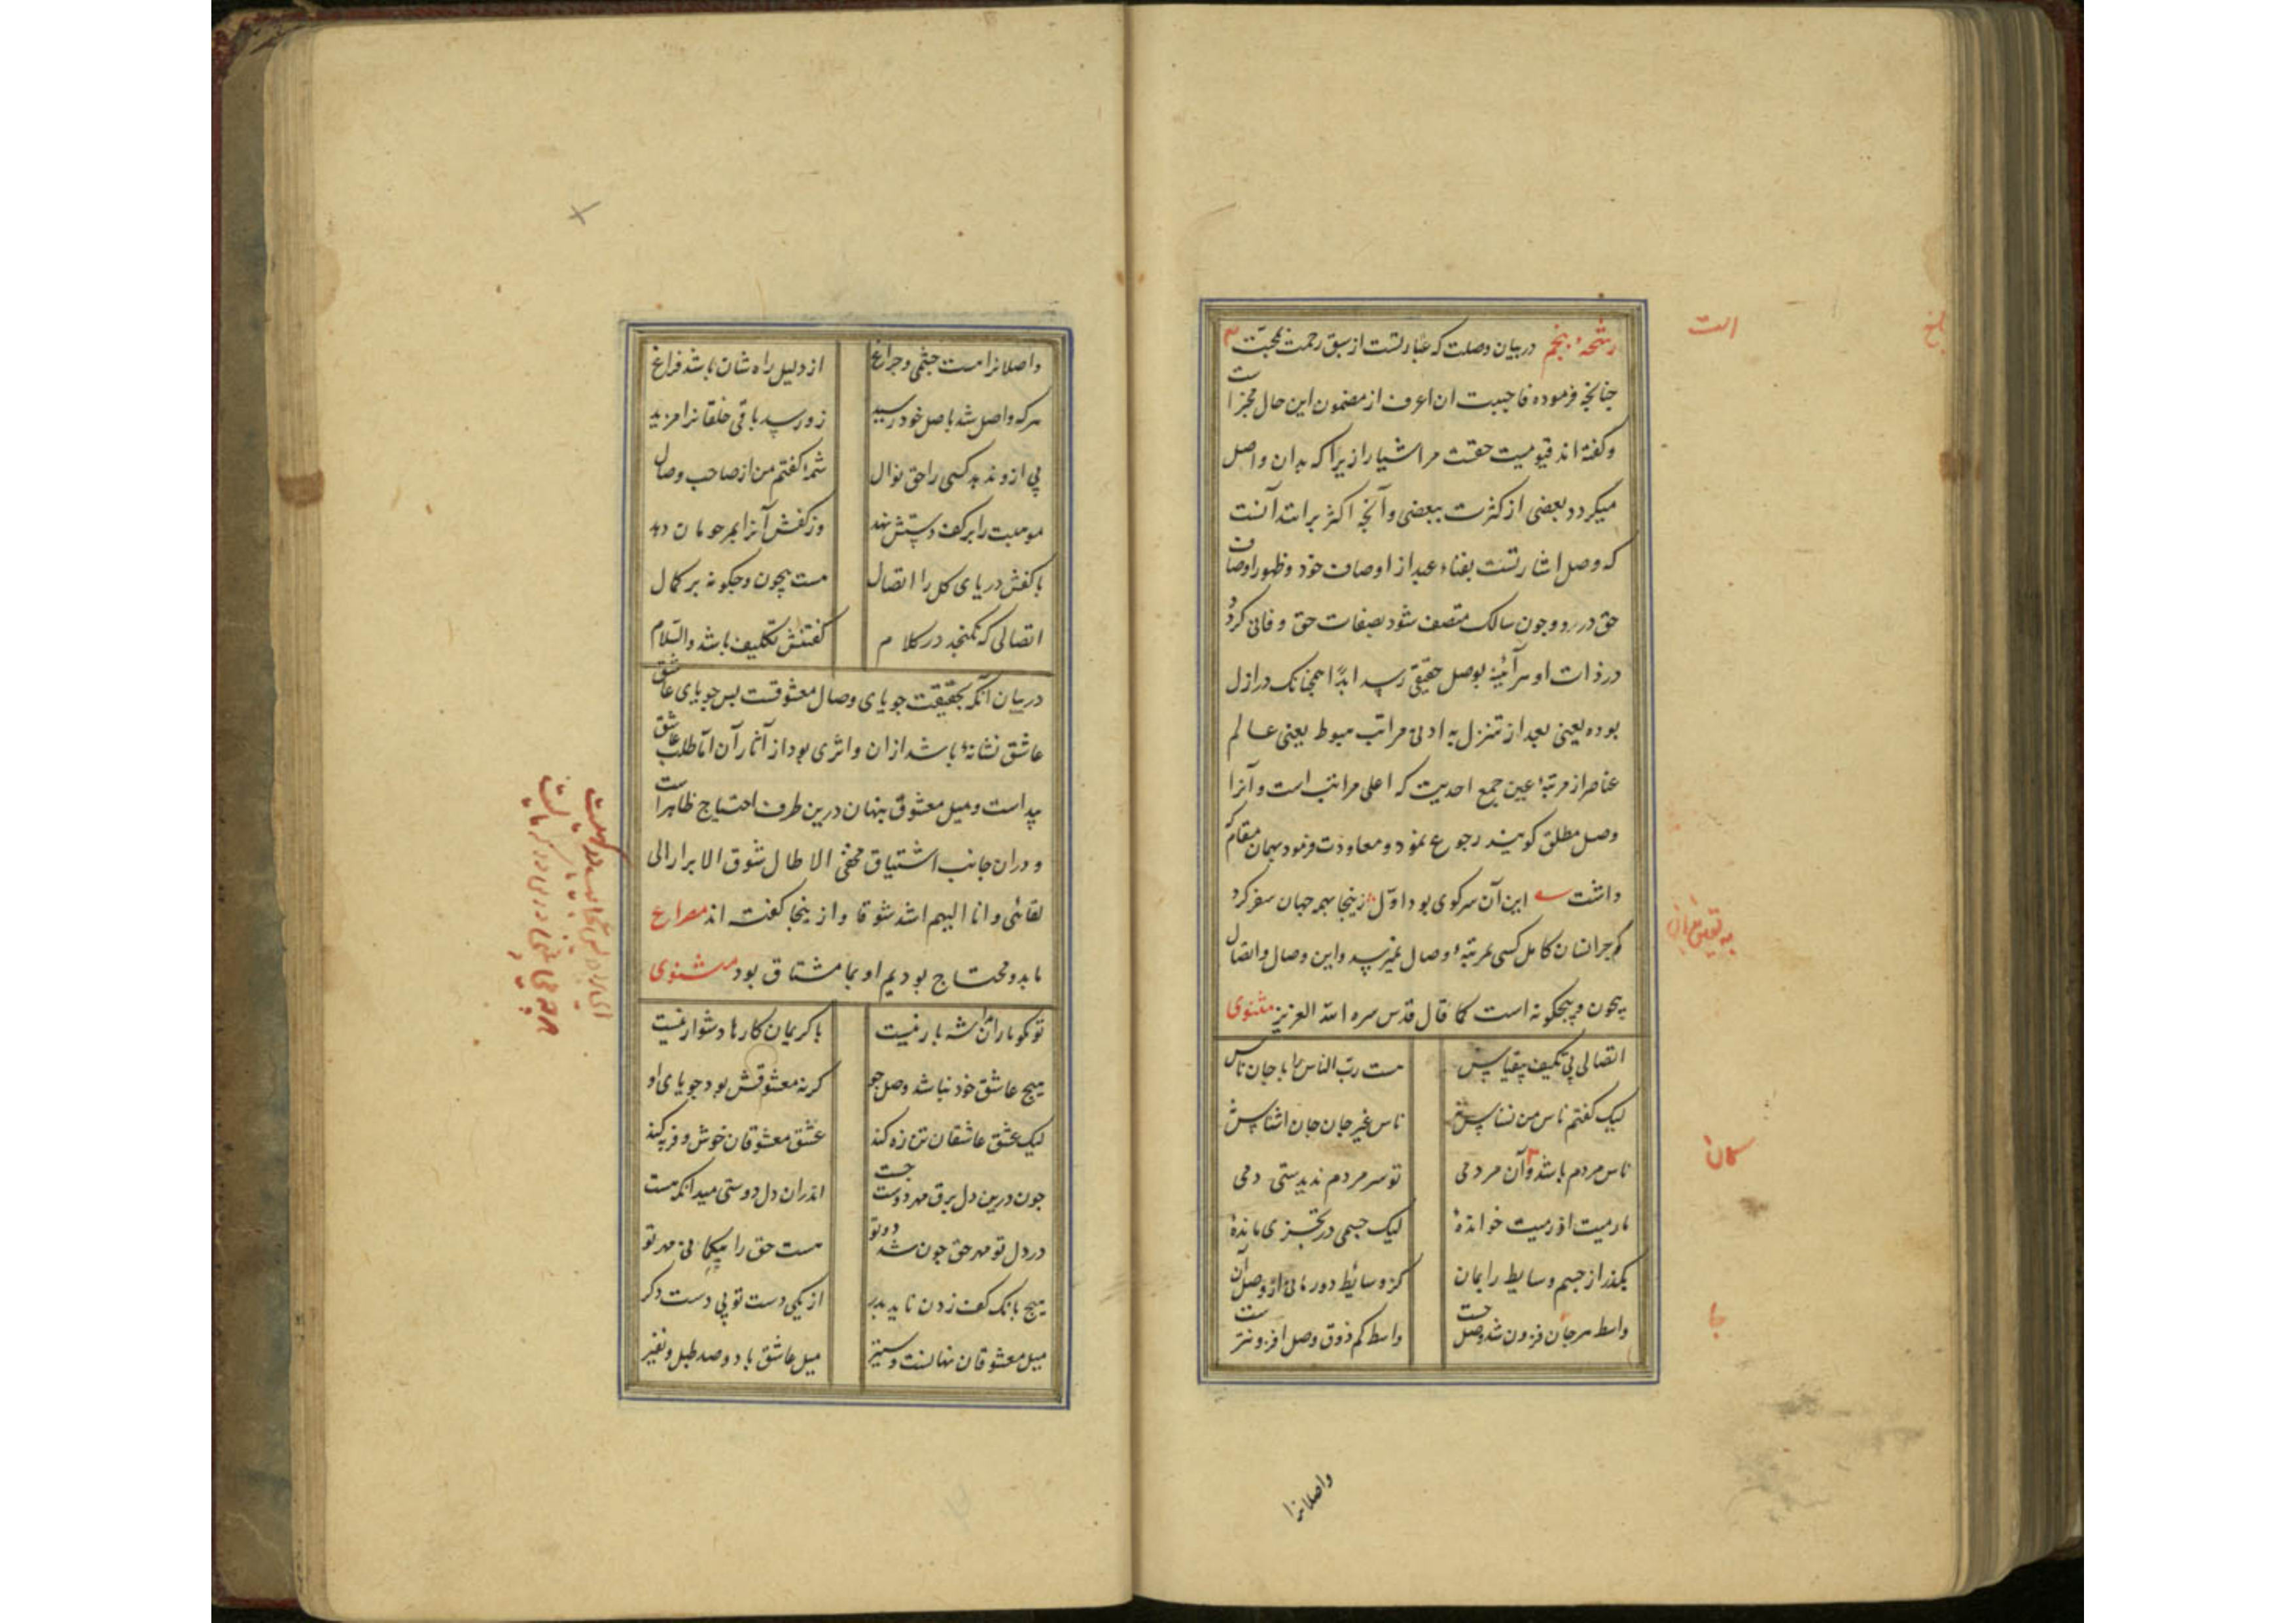 رشحهٔ پنجم در بیان وصلت که عبارتست از سبق رحمت محبت
چنانچه فرموده فاحببت ان اعرف از مضمون این حال مخبر است
و گفته اند قیومیت حقست مر اشیا را زیرا که بدان واصل
میکردد بعضی از کثرت ببعضی و آنچه اکثر برانند آنست
که وصل اشارتست بفناء عبد از اوصاف خود و ظهور اوصاف
حق در رو و چون سالک متصف شود بصفات حق و فانی کردد
در ذات او هر آئینه بوصل حقیقی رسد ابدًا همچنانک در ازل
بوده یعنی بعد از تنزل به ادنی مراتب هبوط یعنی عالم
عناصر از مرتبهٔ عین جمع احدیت که اعلی مراتب است و آنرا
وصل مطلق کویند رجوع نمود و معاودت فرمود بهمان مقام که
داشت این آن سر کوی بود اول زینجا همه جهان سفر کرد
که جز انسان کامل کسی بمرتبهٔ وصال نمیرسد و این وصال و اتصال
بیچون و بیچکونه است کما قال قدس سره الله العزیز مثنوی
اتصالی بی تکیف بیقیاس هست رب الناس را با جان ناس
لیک کفتم ناس من نسناس نی ناس غیر جان جان اشناس نی
ناس مردم باشد و آن مردمی تو سر مردم ندیدستی دمی
ما رمیت اذ رمیت خواندهٔ لیک جسمی در تجزی ماندهٔ
بکذر از جسم و سایط را بمان کز وسائط دور مانی از وصل آن
واسطه هر جان فزون شد وصل جست واسطه کم ذوق وصل افزونتر است
واصلانرا
واصلانرا هست چشمی و چراغ از دلیل راه شان باشد فراغ
هر که واصل شد باصل خود رسید زو رسد باقی خلقانرا مزید
بی ازو ندهد کسی را حق نوال شمهٔ کفتم من از صاحب وصال
موهبت را بر کف دستش نهد وز کفش آنرا بمرحومان دهد
با کفش دریای کل را اتصال هست بیچون و چکونه بر کمال
اتصالی که نکنجد در کلام کفتنش تکلیف باشد والسلام
در بیان آنکه بحقیقت جویای وصال معشوقست پس جویای عاشق
عاشق نشانهٔ باشد از ان و اثری بود از آثار آن اما طلب عاشق
پیداست و میل معشوق پنهان درین طرف احتیاج ظاهر است
و در ان جانب اشتیاق مخفی الا طال شوق الابرار الی
لقائی و انا الیهم اشد شوقا و از ینجا کفته اند مصراع
ما بدو محتاج بودیم او بما مشتاق بود مثنوی
تو مکو ما را بدان شه بار نیست با کریمان کارها دشوار نیست
هیچ عاشق خود نباشد وصل جو کر نه معشوقش بود جویای او
لیک عشق عاشقان تن زه کند عشق معشوقان خوش و فربه کند
چون درین دل برق مهر دوست جست اندر ان دل دوستی میدانکه هست
در دل تو مهر حق چون شد دو تو هست حق را بیکمانی مهر تو
هیچ بانک کف زدن ناید بدر از یکی دست تو بی دست دکر
میل معشوقان نهانست و ستیر میل عاشق با دو صد طبل و نفیر